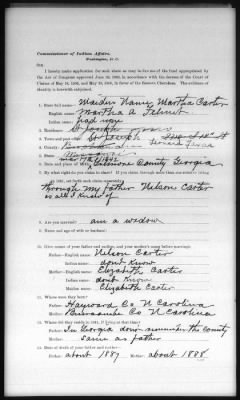 Commissioner of Indian Affairs,
Washington, D. C.
Sir,
I hereby make application for such share as may be due me of the fund appropriated by
the Act of Congress approved June 30, 1906, in accordance with the decrees of the Court of
Claims of May 18, 1905, and May 28, 1906, in favor of the Eastern Cherokees. The evidence of
identity is herewith subjoined.
Maiden Name Martha Carter
1. State full name:
English name: Martha A
Indian name: had none
2. Residence: St Joseph
3. Town and post office: St Joseph
4. County:
5. State: Missouri
6. Date and place of birth: County Georgia
7. By what right do you claim to share? If you claim through more than one relative living
in 1851, set forth each claim separately:
Through my father Nelson Carter
is all I know of
8. Are you married? am a widow
9. Name and age of wife or husband:
10. Give names of your father and mother, and your mother's name before marriage:
Father—English name: Nelson Carter
Indian name: dont Know
Mother—English name: Elizabeth Carter
Indian name: dont Know
Maiden name: Elizabeth Carter
11. Where were they born?
Father: Haywood Co N Carolina
Mother: Buncombe Co N Carolina
12. Where did they reside in 1851, if living at that time?
Father: In Georgia dont remember the county
Mother: same as father
13. Date of death of your father and mother—
Father: about 1887 Mother: about 1888